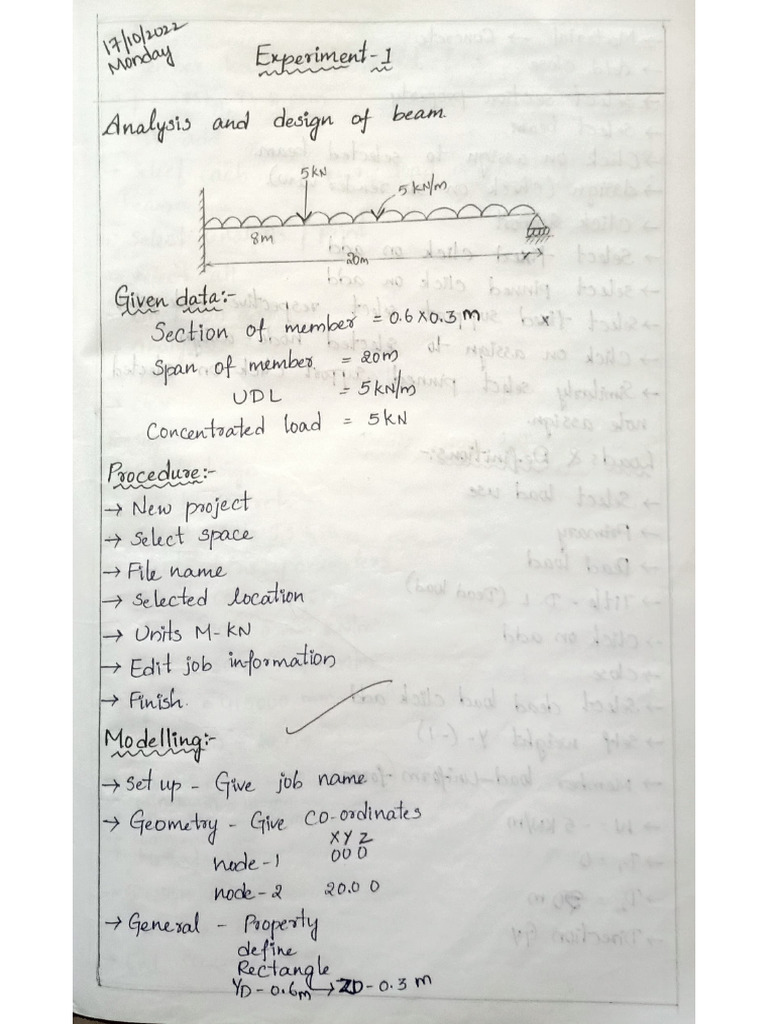 17/10/2022
Monday
Experiment-1
Analysis and design of beam.
5kN
5 kN/m
8m
20m
x
Given data:-
Section of member = 0.6x0.3 m x
Span of member = 20m
UDL = 5 kN/m
Concentrated load = 5 KN
Procedure:-
→ New project
→ Select space
→ File name
→ Selected location
→ Units M-KN
→ Edit job information
→ Finish.
Modelling:-
→ Set up - Give job name
→ Geometry - Give CO-ordinates
X Y Z
node-1 0 0 0
node-2 20.0 0
→ General - Property
define
Rectangle
YD-0.6m → ZD-0.3 m